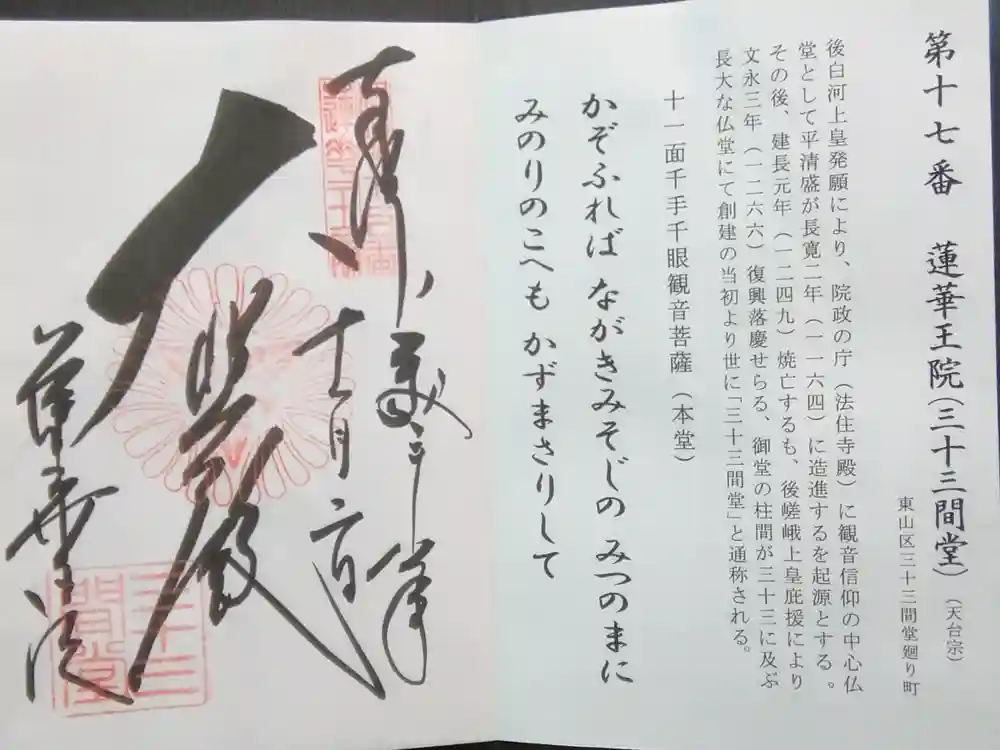 第十七番 蓮華王院（三十三間堂）（天台宗）
東山区三十三間堂廻り町
後白河上皇発願により、院政の庁（法住寺殿）に観音信仰の中心仏
堂として平清盛が長寛二年（一一六四）に造進するを起源とする。
その後、建長元年（一二四九）焼亡するも、後嵯峨上皇庇援により
文永三年（一二六六）復興落慶せらる、御堂の柱間が三十三に及ぶ
長大な仏堂にて創建の当初より世に「三十三間堂」と通称される。
十一面千手千眼観音菩薩（本堂）
かぞふれば ながきみそじの みつのまに
みのりのこへも かずまさりして
奉拝
十二月二日
大悲殿
蓮華王院
三十三
間堂